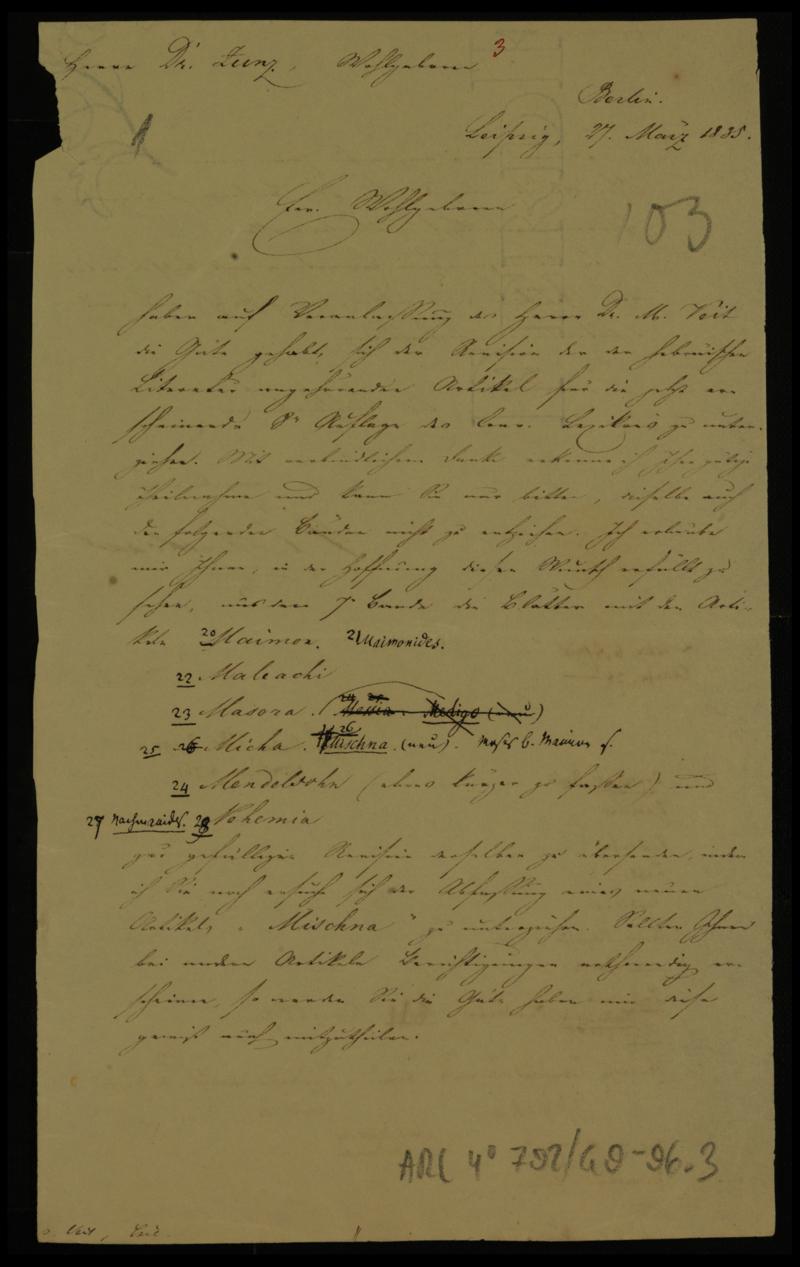 Herrn Dr. Zunz, Wohlgeboren
3
Berlin.
Leipzig, 27. März 1835.
1
Ew. Wohlgeboren
103
haben auf Veranlassung des Herrn Dr. M. Veit
die Güte gehabt, sich der Revision der der hebräischen
Literatur angehörenden Artikel für die jetzt er-
scheinende 8e Auflage des Conv. Lexikons zu unter-
ziehen. Mit verbindlichem Danke erkenne ich Ihre gütige
Theilnahme und kann Sie nur bitten, dieselbe auch
den folgenden Bänden nicht zu entziehen. Ich erlaube
mir Ihnen, in der Hoffnung diesen Wunsch erfüllt zu
sehen, aus dem 7n Bande die Blätter mit den Arti-
keln 20 Maimon. 21 Maimonides.
22 Maleachi
23 Masora. (24 25 Messia. Medigo (neu)
25 26 Micha. 26 Mischna (neu). Moses b. Maimon s.
24 Mendelssohn (etwas kürzer zu fassen) und
27 Nachmanides. 28 Nehemia
zur gefälligen Revision derselben zu übersenden, indem
ich Sie noch ersuche sich der Abfassung eines neuen
Artikels „Mischna" zu unterziehen. Sollten Ihnen
bei andern Artikeln Berichtigungen nothwendig er-
scheinen, so werden Sie die Güte haben mir diese
gewiß auch mitzutheilen.
ARC 4° 792/G9-96.3